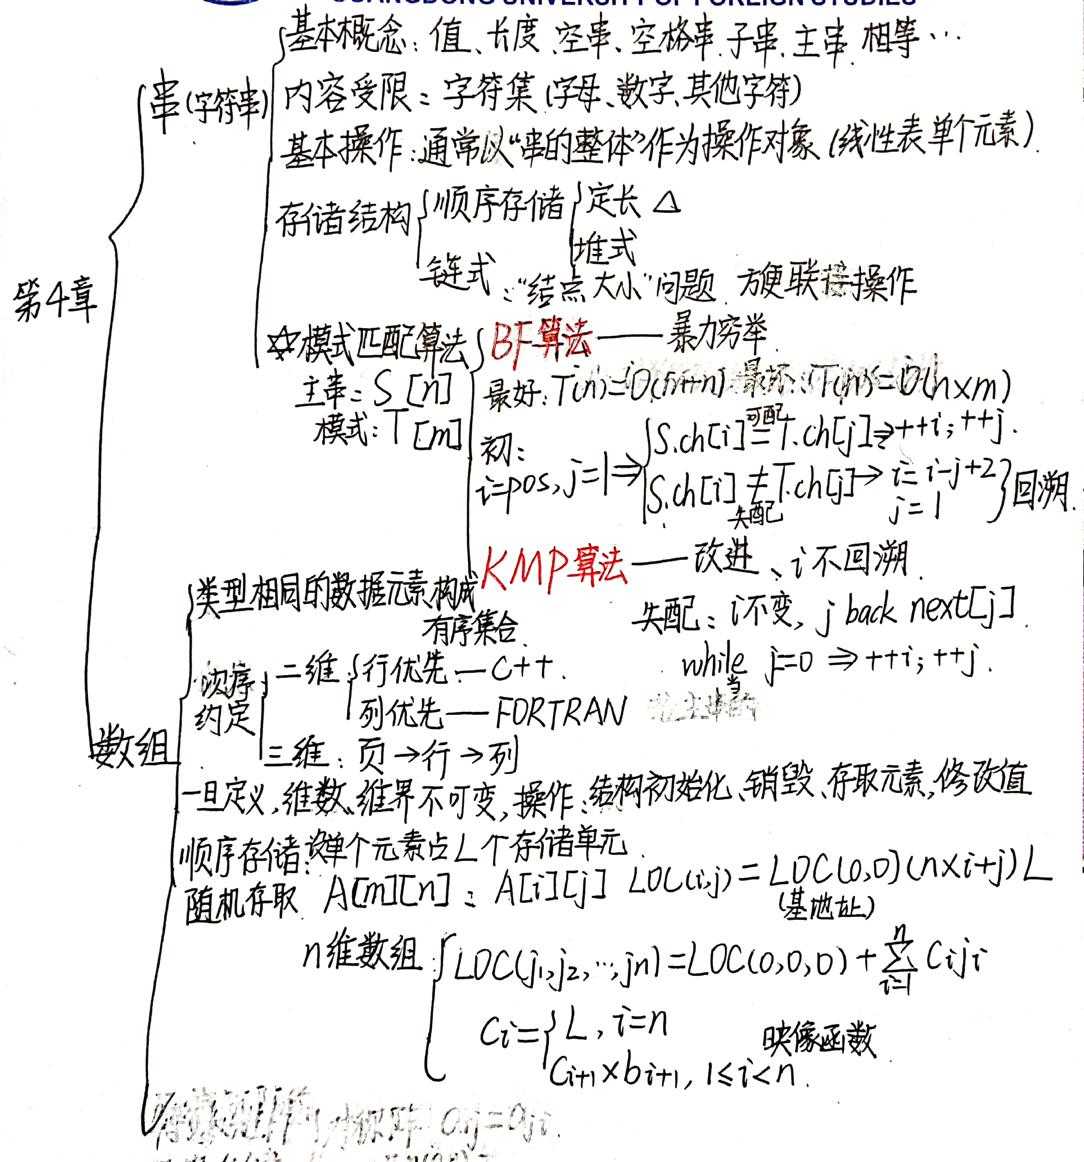 GUANGDONG UNIVERSITY OF FOREIGN STUDIES
第4章
串(字符串)
基本概念:值、长度、空串、空格串、子串、主串、相等…
内容受限:字符集(字母、数字、其他字符)
基本操作:通常以“串的整体”作为操作对象(线性表单个元素).
存储结构
顺序存储
定长 △
堆式
链式:“结点大小”问题 方便联接操作
☆模式匹配算法
主串:S[n]
模式:T[m]
BF算法——暴力穷举
最好:T(n)=O(m+n) 最坏:T(n)=O(n×m)
初:
i=pos,j=1⇒
S.ch[i]=T.ch[j]⇒++i;++j.
可配
S.ch[i]≠T.ch[j]→i=i-j+2
失配
j=1
回溯.
KMP算法——改进、i不回溯.
失配:i不变,j back next[j].
while j=0⇒++i;++j.
当
数组
类型相同的数据元素构成
有序集合.
次序
约定
二维
行优先—C++.
列优先—FORTRAN
三维:页→行→列
一旦定义,维数、维界不可变,操作:结构初始化、销毁、存取元素,修改值
顺序存储:设单个元素占L个存储单元.
随机存取 A[m][n]:A[i][j] LOC(i,j)=LOC(0,0)(n×i+j)L
(基地址)
n维数组
LOC(j₁,j₂,…,jn)=LOC(0,0,0)+∑ⁿᵢ₌₁Ciji
Ci=
L,i=n
Ci+1×bi+1,1≤i<n.
映像函数
aij=aji.